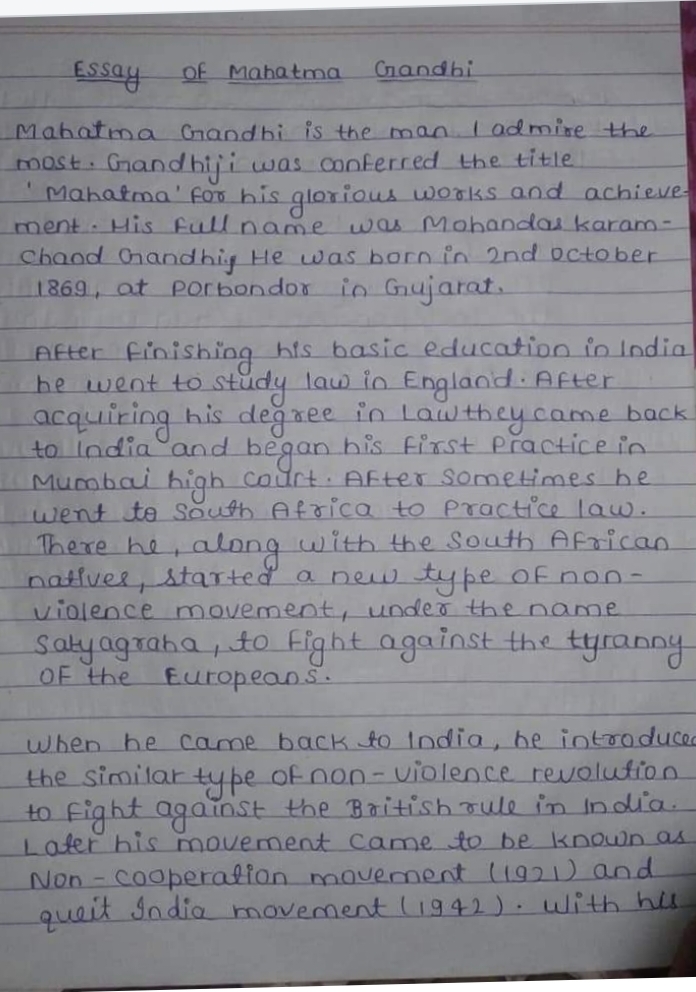 Essay of Mahatma Gandhi
Mahatma Gandhi is the man I admire the
most. Gandhiji was conferred the title
'Mahatma' for his glorious works and achieve-
ment. His full name was Mohandas karam-
chand Gandhi, He was born in 2nd october
1869, at Porbondor in Gujarat.
After finishing his basic education in India
he went to study law in England. After
acquiring his degree in Law they came back
to India and began his first Practice in
Mumbai high court. After sometimes he
went to South Africa to Practice law.
There he, along with the South African
natives, started a new type of non-
violence movement, under the name
Satyagraha, to Fight against the tyranny
of the Europeans.
When he came back to India, he introduced
the similar type of non-violence revolution
to Fight against the British rule in India.
Later his movement came to be known as
Non-cooperation movement (1921) and
queit India movement (1942). With his